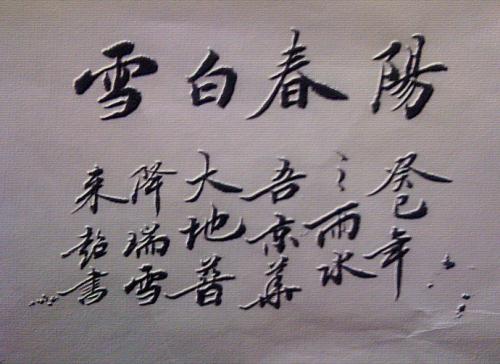 陽春白雪
癸巳年
之雨水
吾京華
大地普
降瑞雪
来超書